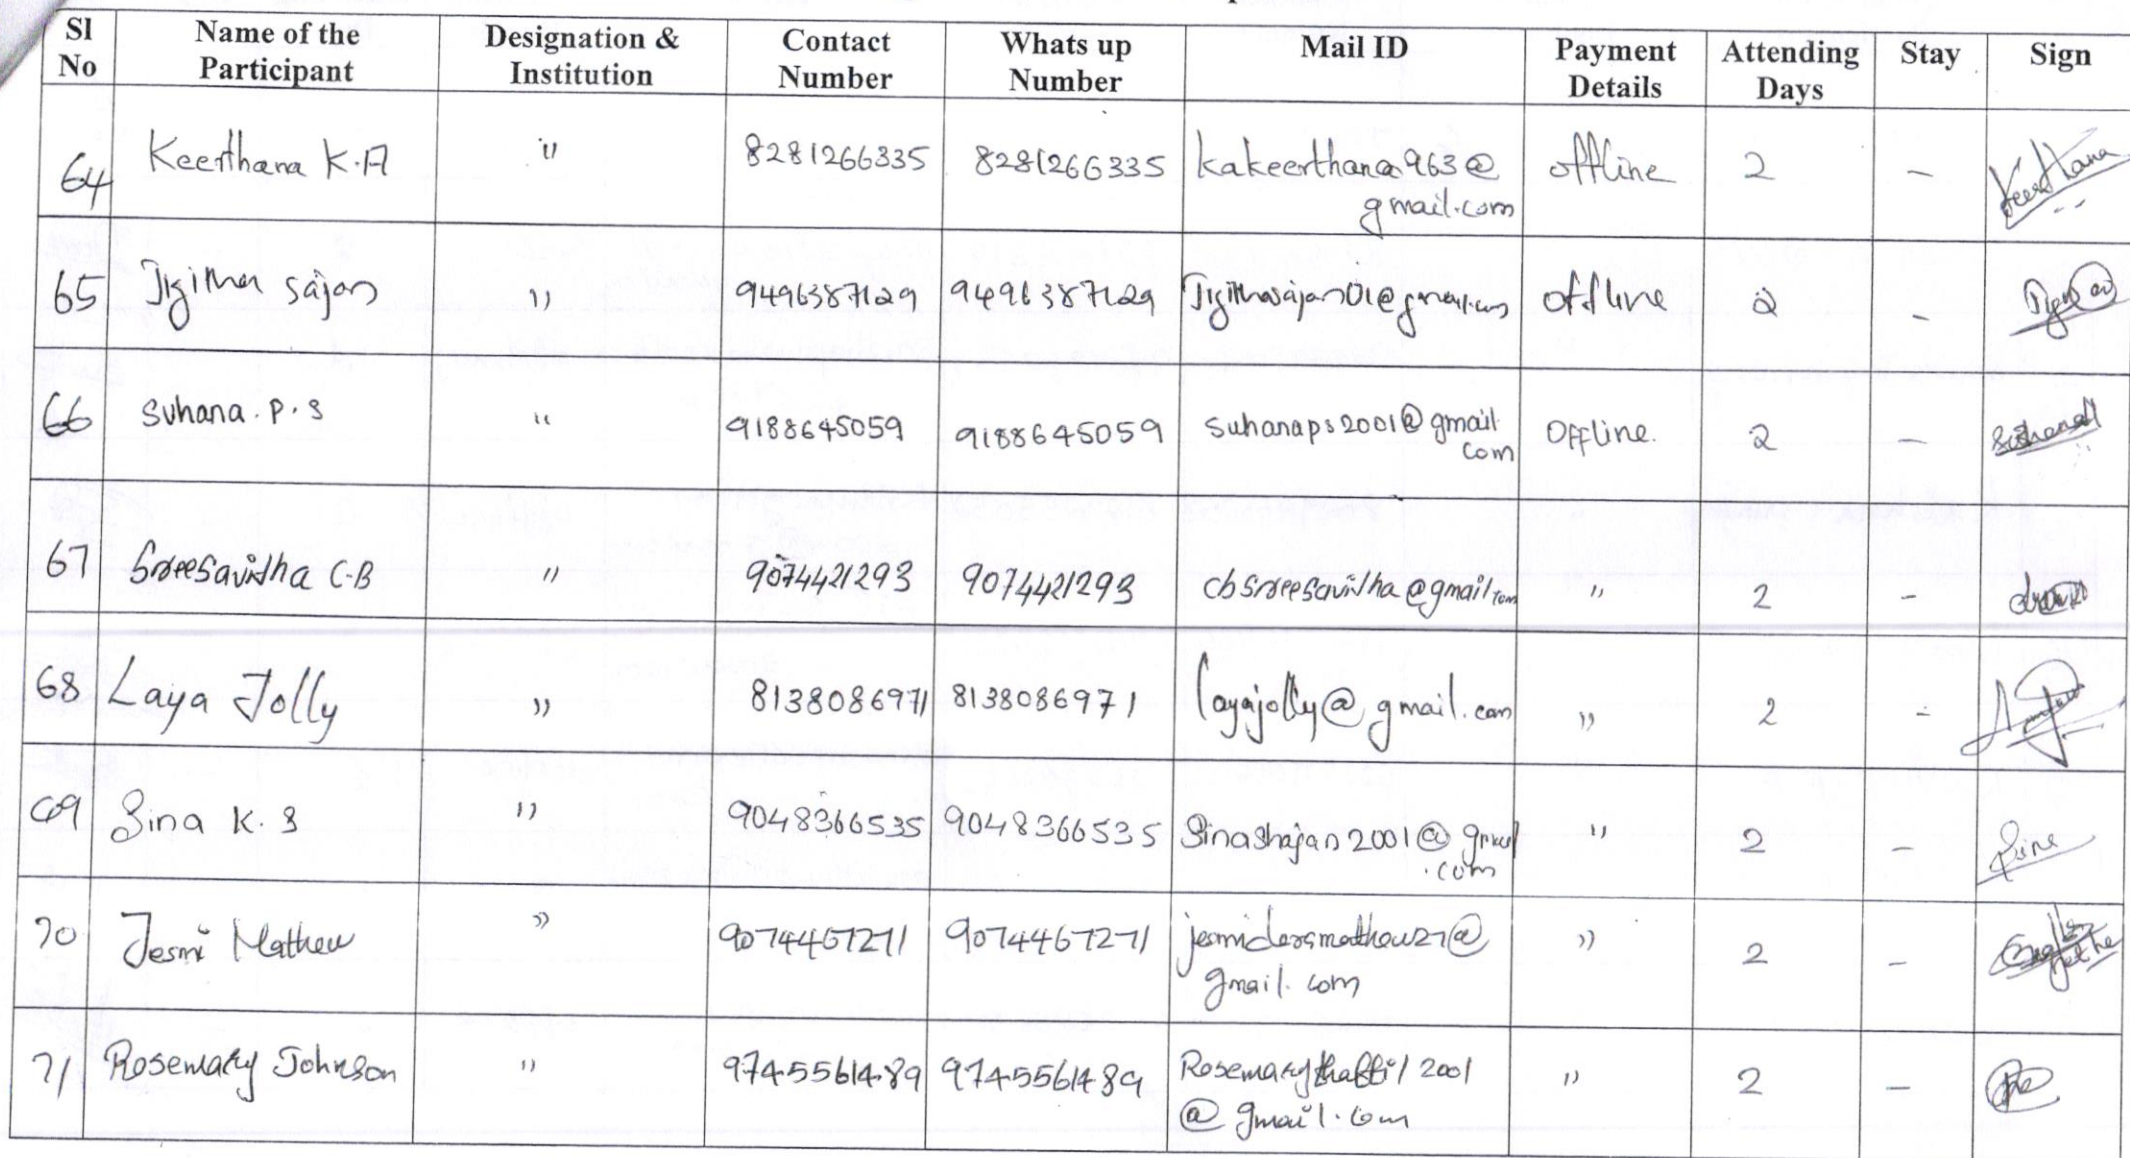 Sl No Name of the Participant Designation & Institution Contact Number Whats up Number Mail ID Payment Details Attending Days Stay Sign
64 Keerthana K.A " 8281266335 8281266335 kakeerthana963@ offline 2 - Keerthana
gmail.com
65 Jigitha Sajan " 9496387129 9496387129 Jigithasajan01@gmail.com offline 2 -
66 Suhana.P.S " 9188645059 9188645059 suhanaps2001@gmail Offline. 2 - Suhana
com
67 Sreesavitha C.B " 9074421293 9074421293 cbsreesavitha@gmail.com " 2 -
68 Laya Jolly " 8138086971 8138086971 layajolly@gmail.com " 2 -
69 Sina K.S " 9048366535 9048366535 Sinashajan2001@gmail " 2 - Sina
.com
70 Jesmi Mathew " 9074467271 9074467271 " 2 -
gmail.com
71 Rosemary Johnson " 9745561489 9745561489 " 2 -
@gmail.com